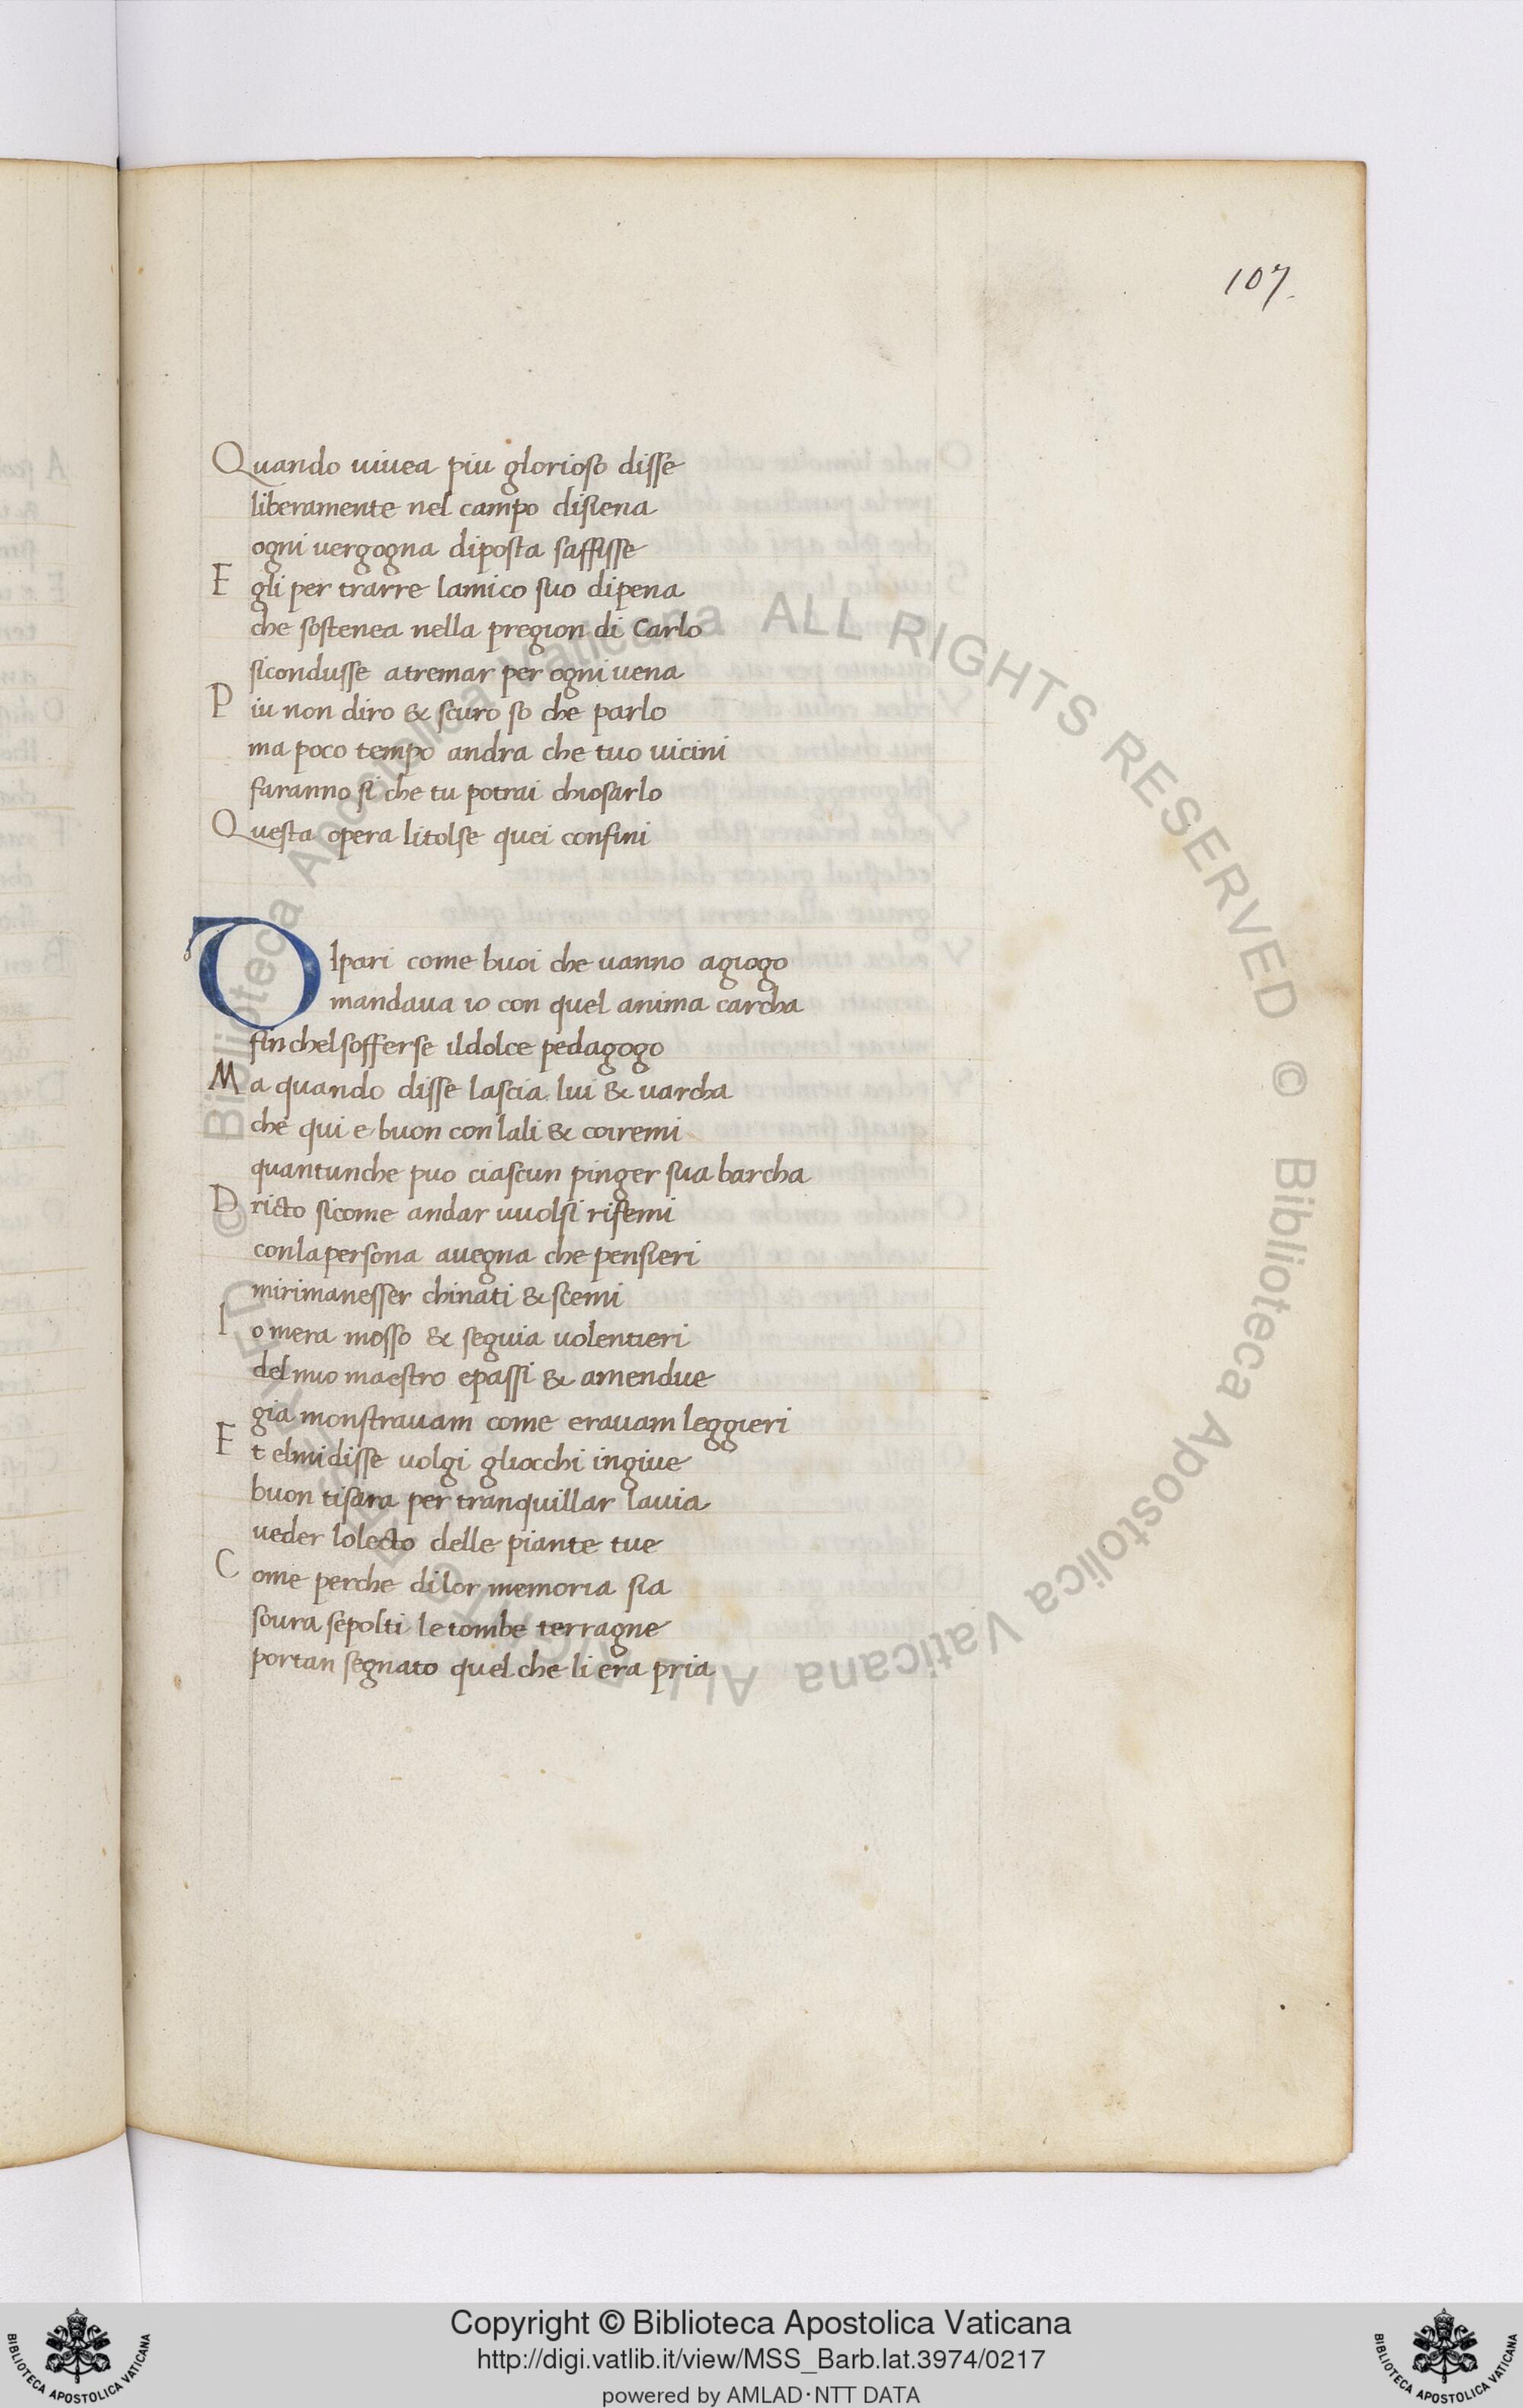 107.
Quando uiuea piu glorioso disse
liberamente nel campo disiena
ogni vergogna diposta saffisse
Egli per trarre lamico suo dipena
che sostenea nella pregion di Carlo
sicondusse atremar per ogni uena
Piu non diro & scuro so che parlo
ma poco tempo andra che tuo uicini
faranno si che tu potrai chiosarlo
Questa opera litolse quei confini
Dlpari come buoi che uanno agiogo
mandaua io con quel anima carcha
fin chel sofferse ildolce pedagogo
Ma quando disse lascia lui & uarcha
che qui e buon con lali & coiremi
quantunche puo ciascun pinger sua barcha
Dricto sicome andar uuolsi rifemi
conlapersona auegna che pensieri
mirimanesser chinati & scemi
Io mera mosso & seguia uolentieri
del mio maestro epassi & amendue
gia monstrauam come erauam leggieri
Et elmidisse uolgi gliocchi ingiue
buon tisara per tranquillar lauia
ueder lolecto delle piante tue
Come perche dilor memoria sia
soura sepolti le tombe terragne
portan segnato quel che li era pria
© Biblioteca Apostolica Vaticana ALL RIGHTS RESERVED © Biblioteca Apostolica Vaticana ALL RIGHTS RESERVED
Copyright © Biblioteca Apostolica Vaticana
http://digi.vatlib.it/view/MSS_Barb.lat.3974/0217
powered by AMLAD·NTT DATA
BIBLIOTECA APOSTOLICA VATICANA
BIBLIOTECA APOSTOLICA VATICANA